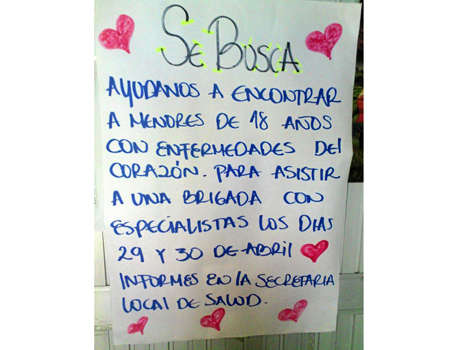 SE BUSCA
AYUDANOS A ENCONTRAR
A MENORES DE 18 AÑOS
CON ENFERMEDADES DEL
CORAZÓN. PARA ASISTIR
A UNA BRIGADA CON
ESPECIALISTAS LOS DIAS
29 Y 30 DE ABRIL
INFORMES EN LA SECRETARIA
LOCAL DE SALUD.